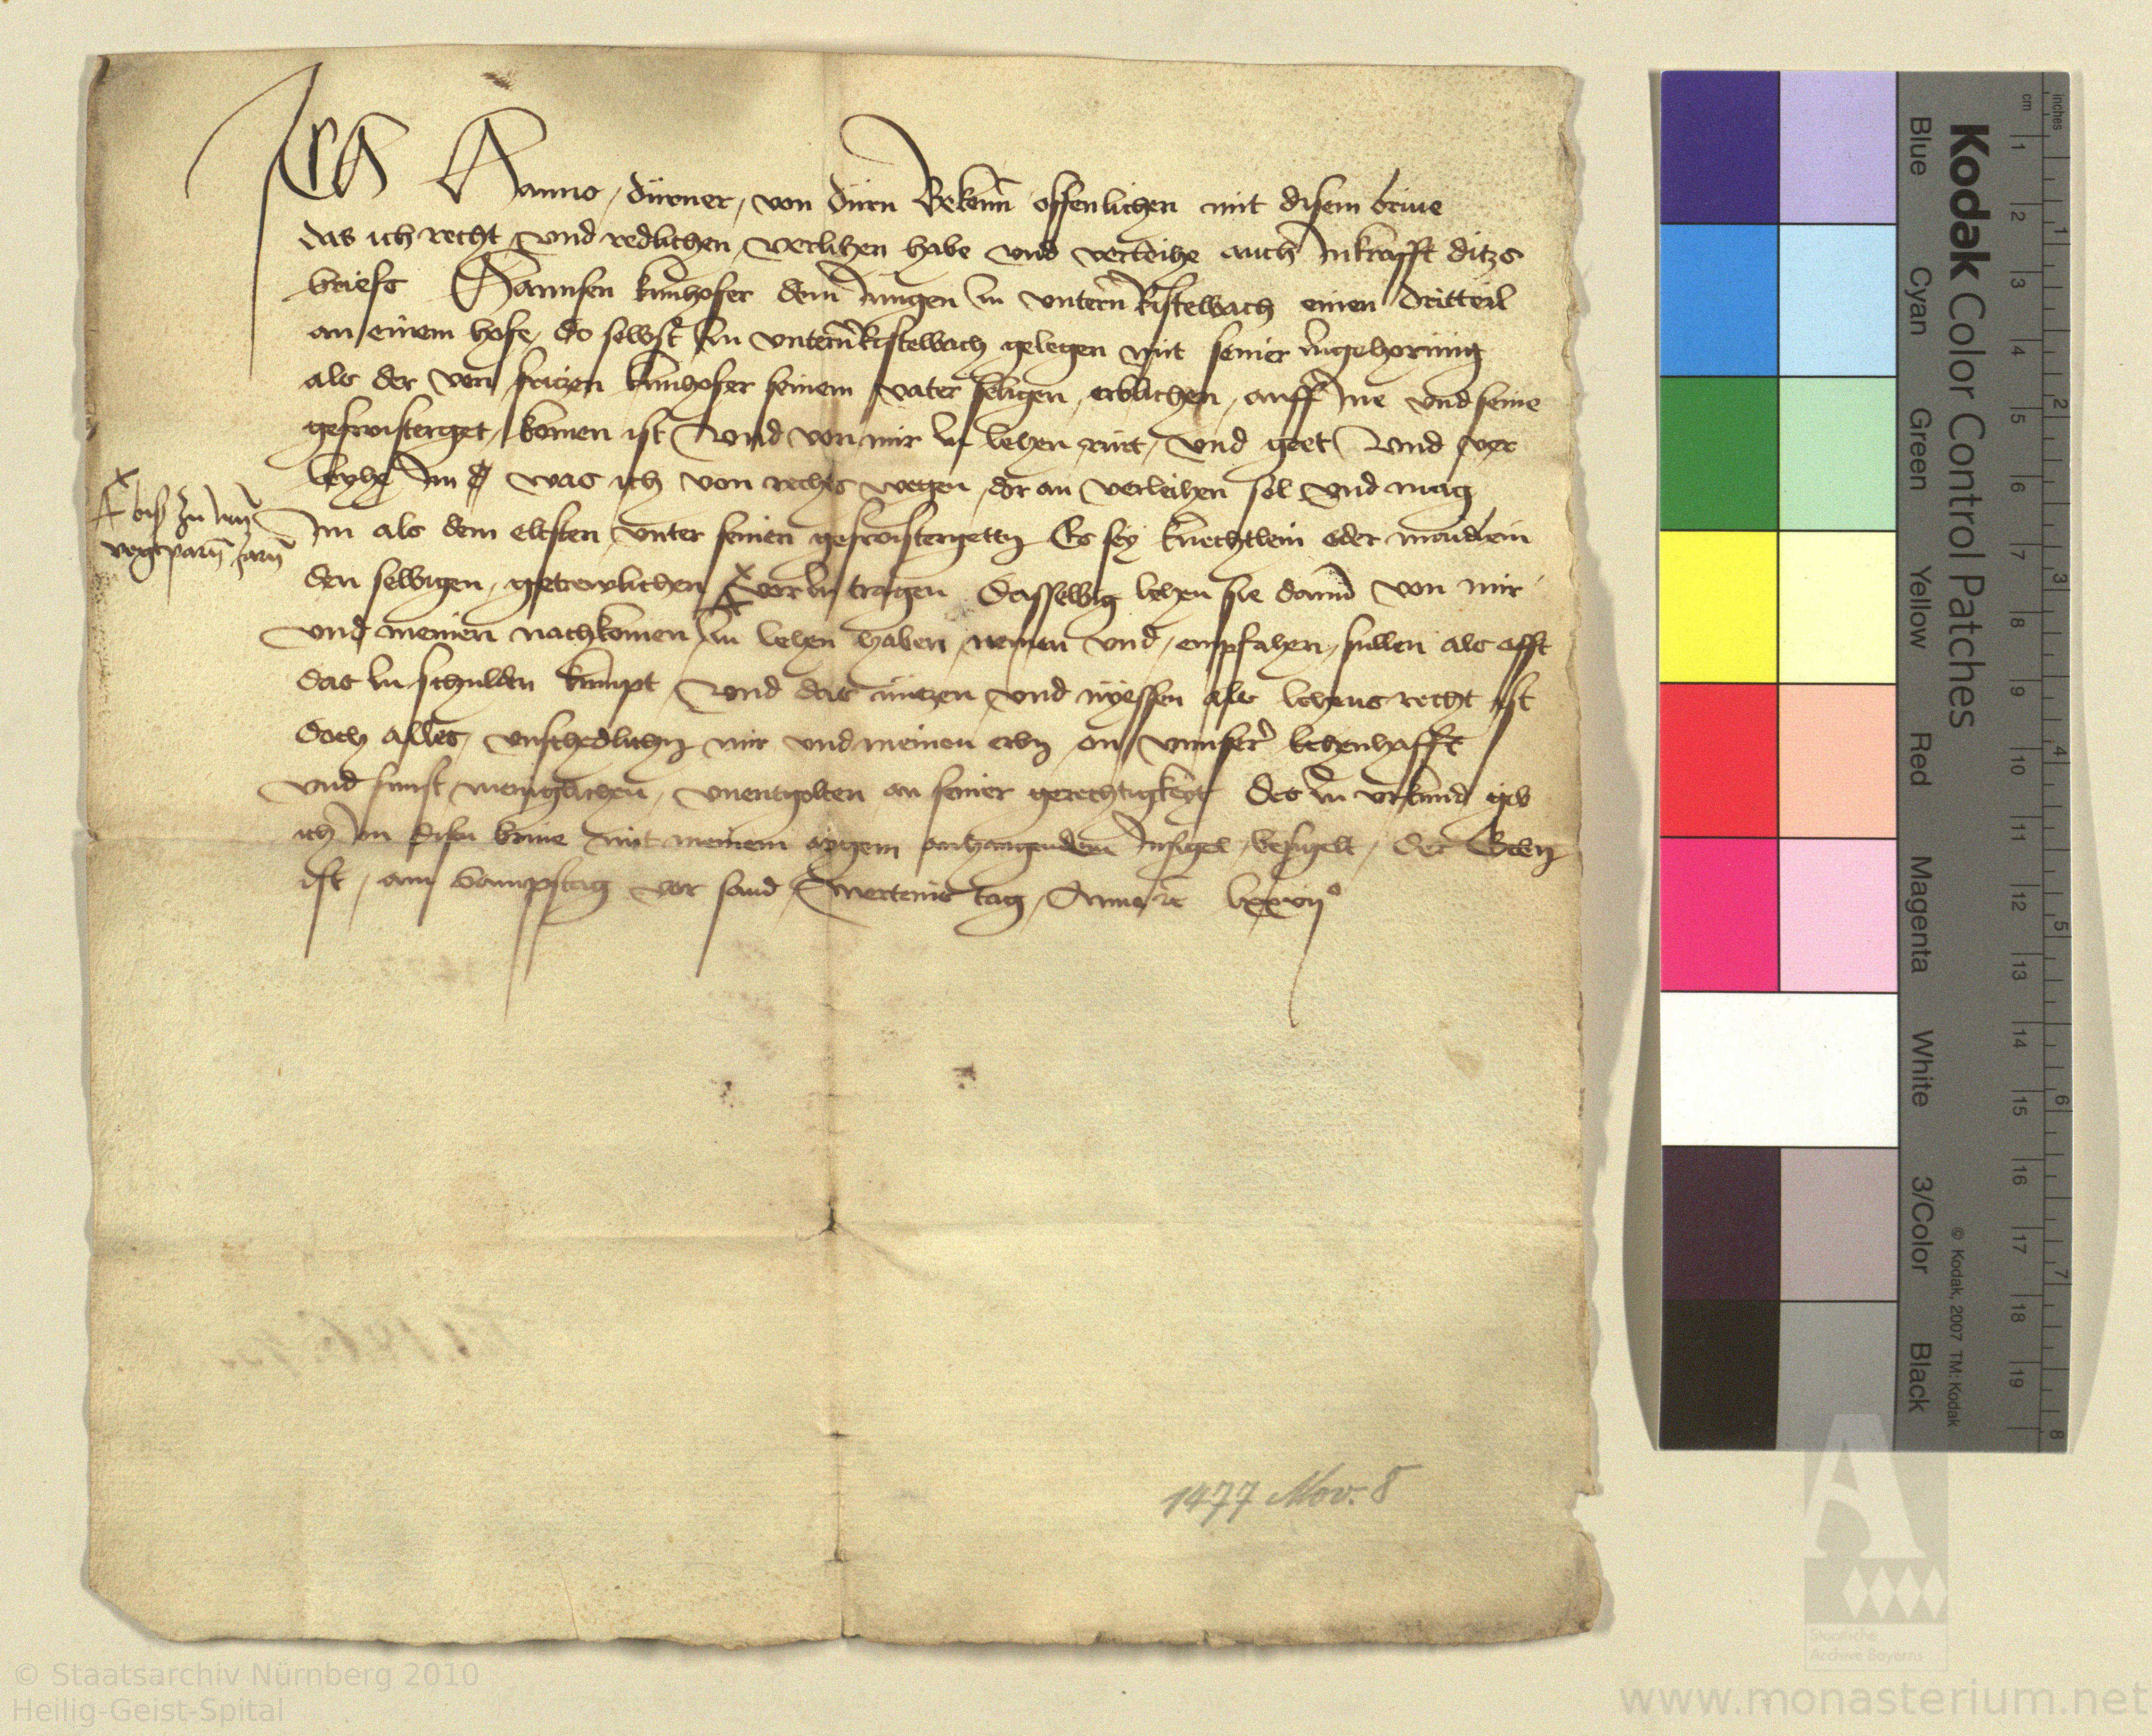 Ich Hanns dürner von dürn Bekenn offenlichen mit disem briue
das ich recht vnd redlichen verlihen habe vnd verleihe auch Inkrafft ditzs
briefs Hannsen kunhofer dem Jungen zu vntern Ristelbach einen dritteil
an einem hofe do selbst zu vntern Ristelbach gelegen mit seiner zugehorung
als der von fritzen kunhofer seinem vater seligen erblichen auff Ine vnd seine
geswisterget komen ist vnd von mir zu lehen rürt vnd geet vnd ver
leyhe Im was ich von rechts wegen dor an verleihen sol vnd mag
Im als dem eltsten vnter seinen geswistergetten Es sey knechtlein oder maidlein
den selbigen getrewlichen vor zu tragen Dasselbig lehen sie dann von mir
x biß zu iren
vogtparn jarn
vnd meinen nachkomen zu lehen haben nemen vnd empfahen sullen als offt
das zu schulden kumpt vnd das nutzen vnd nyessen als lehens recht ist
doch alles vnschedlichen mir vnd meinen erben an vnnser lehenschafft
vnd sunst meniglichen vnentgolten an seiner gerechtigkeyt Des zu vrkund gib
ich Im disen briue mit meinem aygem anhangendem Insigel besigelt Der Geben
ist am Sampstag vor sand Mertenis tag Anno etc lxxvijº
1477 Nov. 8
Kodak Color Control Patches
© Kodak, 2007 TM: Kodak
Blue Cyan Green Yellow Red Magenta White 3/Color Black
inches 1 2 3 4 5 6 7 8
cm 1 2 3 4 5 6 7 8 9 10 11 12 13 14 15 16 17 18 19
Staatliche
Archive Bayerns
© Staatsarchiv Nürnberg 2010
Heilig-Geist-Spital
www.monasterium.net